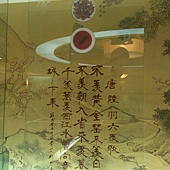 唐陸羽六羨歌
不羨黃金罍不羨白
不羨朝入省不羨暮
千羨萬羨西江水曾向
城下來